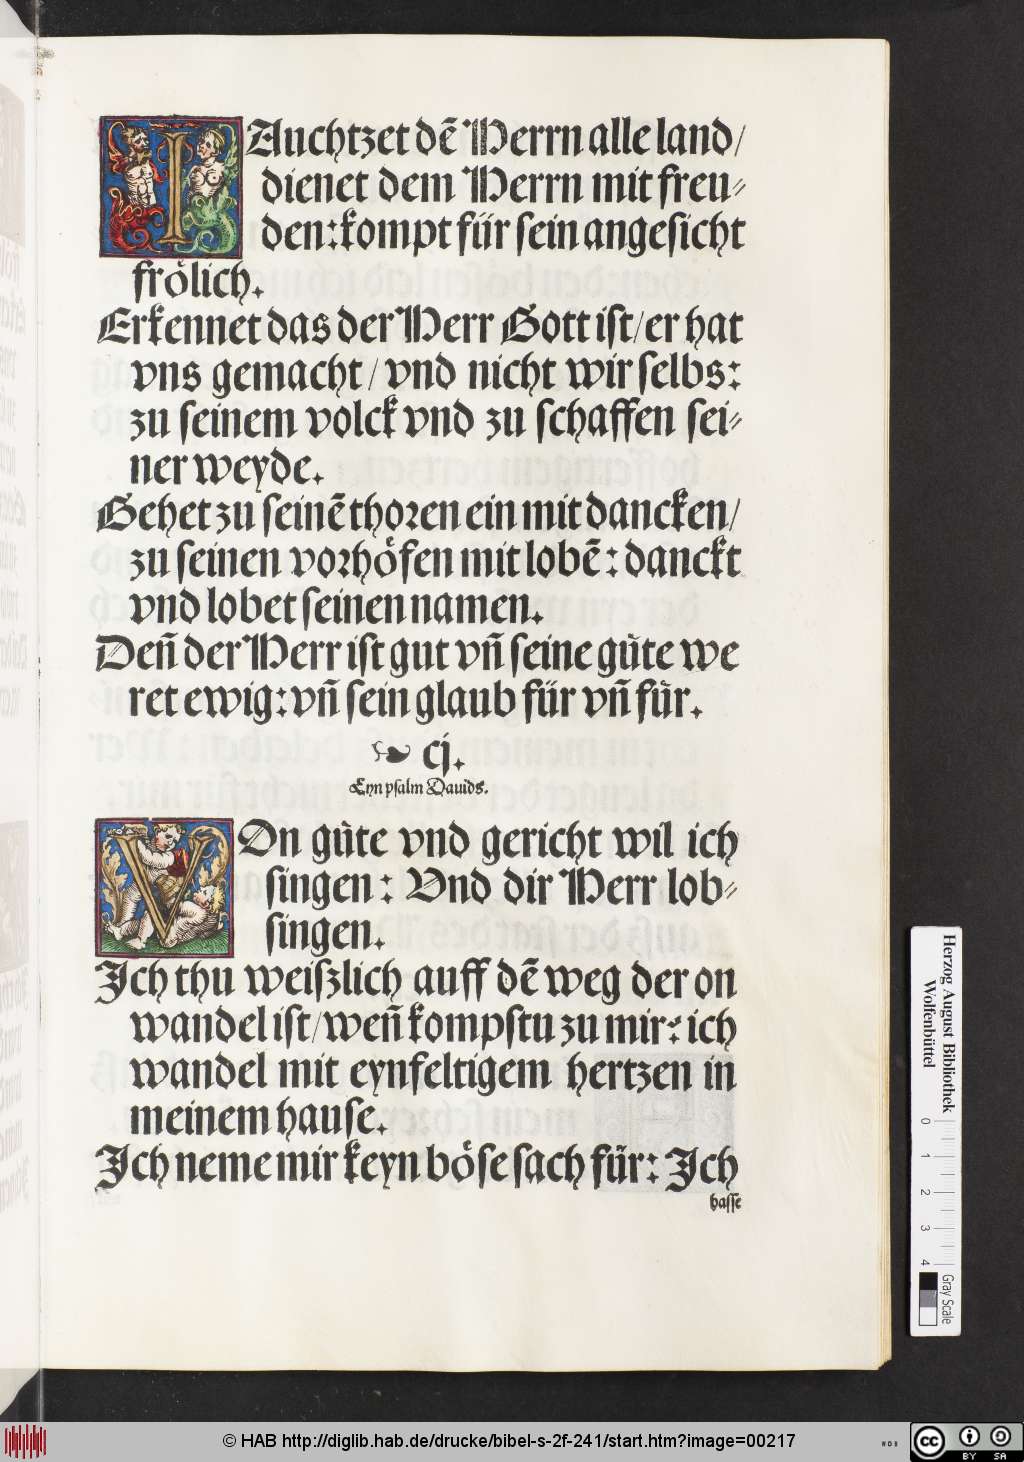 IAuchtzet dē Herrn alle land/
dienet dem Herrn mit freu⸗
den: kompt für sein angesicht
frölich.
Erkennet das der Herr Gott ist/er hat
vns gemacht/vnd nicht wir selbs:
zu seinem volck vnd zu schaffen sei⸗
ner weyde.
Gehet zu seinē thoren ein mit dancken/
zu seinen vorhöfen mit lobē: danckt
vnd lobet seinen namen.
Deñ der Herr ist gut vñ seine gůte we
ret ewig: vñ sein glaub für vñ fůr.
☙ cj.
Eyn psalm Dauids.
VOn gůte vnd gericht wil ich
singen: Vnd dir Herr lob⸗
singen.
Ich thu weiszlich auff dē weg der on
wandel ist/weñ kompstu zu mir: ich
wandel mit eynfeltigem hertzen in
meinem hause.
Ich neme mir keyn böse sach für: Ich
hasse
Herzog August Bibliothek
Wolfenbüttel
0 1 2 3 4
Gray Scale
© HAB http://diglib.hab.de/drucke/bibel-s-2f-241/start.htm?image=00217
WDB
cc BY SA